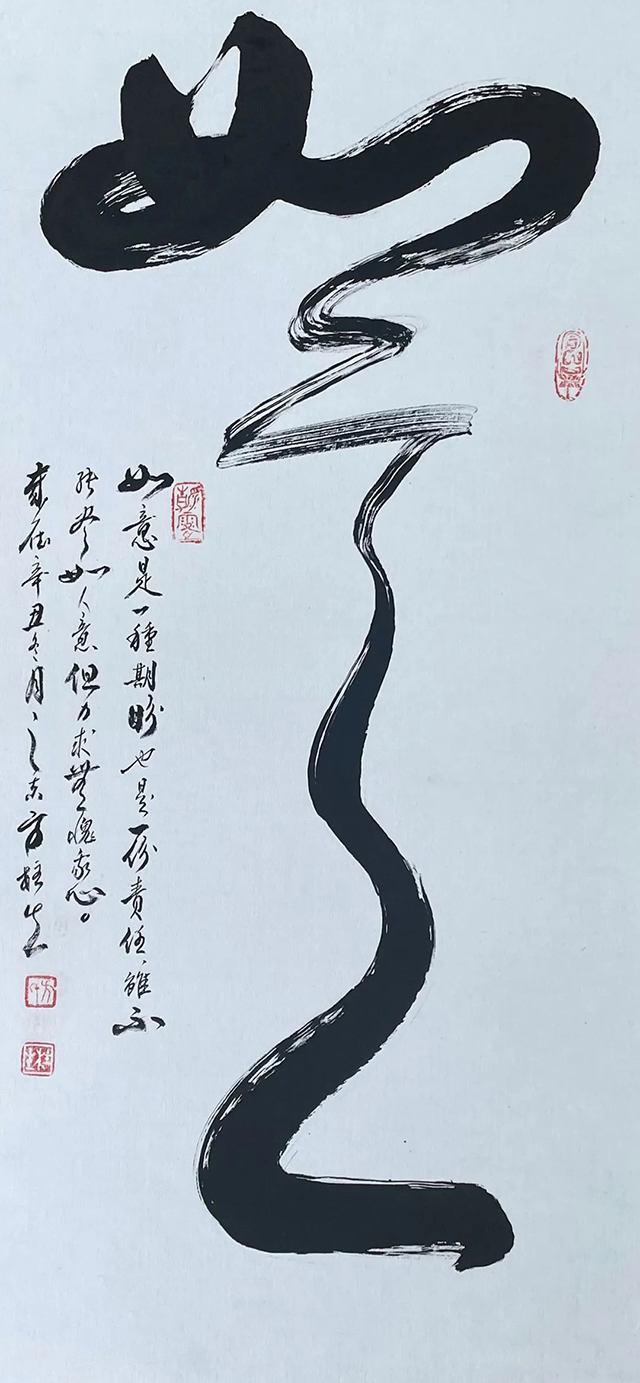 如意
如意是一種期盼也是一份責任雖不
能尽如人意但力求無愧我心。
歲在辛丑冬月之末方柱生